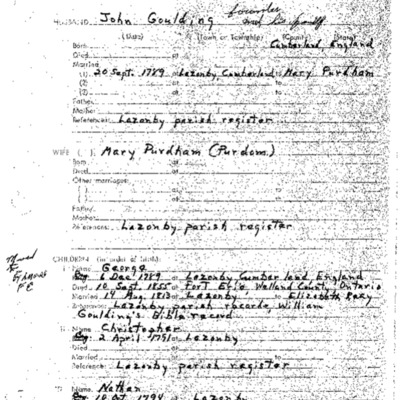 HUSBAND John Goulding
(Date) (Town or Township) (County) (State)
Born Cumberland England
Died at
Married
(1) 20 Sept. 1789 at Lazonby Cumberland to Mary Purdham
(2) at to
(2) at to
Father
Mother
References: Lazonby parish register
WIFE ( ) Mary Purdham (Purdom)
Born at
Died at
Other marriages:
( ) at to
( ) at to
Father
Mother
References: Lazonby parish register
CHILDREN (in order of birth)
Name George
6 Dec. 1789 at Lazonby Cumberland England
Died 10 Sept. 1855 at Fort Erie Welland County Ontario
Married 14 Aug. 1813 at Lazonby to Elizabeth
References: Lazonby parish records William
Goulding's Bible record
Name Christopher
2 April 1791 at Lazonby
Died at
Married at to
Reference: Lazonby parish register
Name Nathan
10 Oct. 1794 at Lazonby